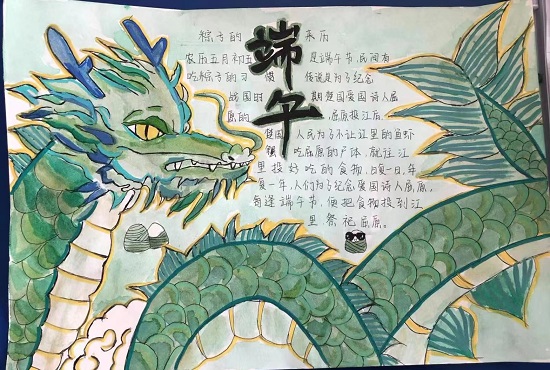 粽子的来历
端午
农历五月初五是端午节,民间有
吃粽子的习俗,传说是为了纪念
战国时期楚国爱国诗人屈
原的。屈原投江后,
楚国人民为了不让江里的鱼虾
蟹吃屈原的尸体,就往江
里投好吃的食物,日复一日,年
复一年,人们为了纪念爱国诗人屈原,
每逢端午节,便把食物投到江
里祭祀屈原。